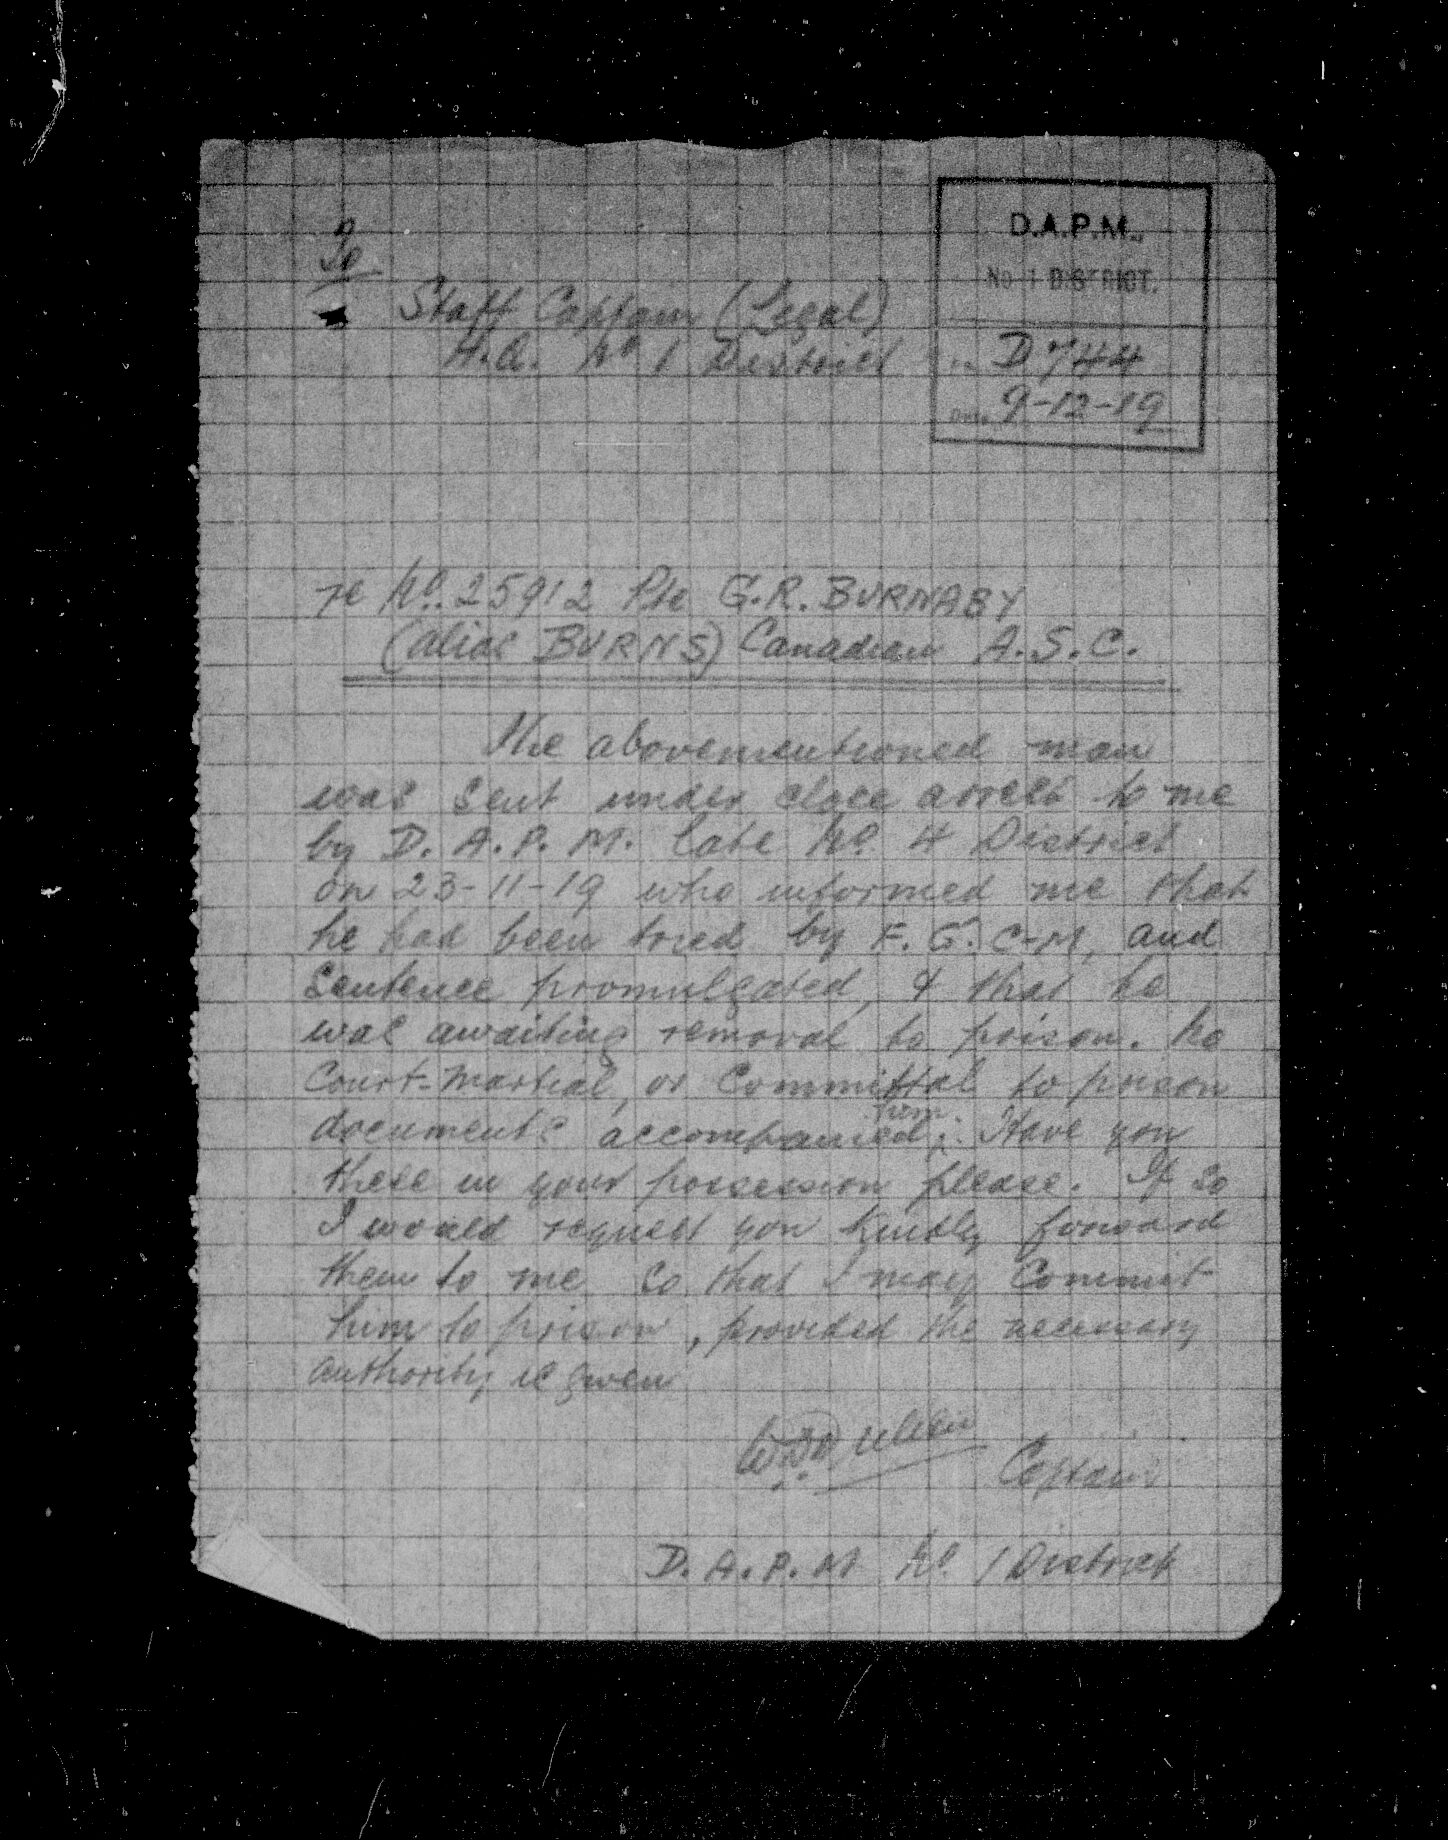 D.A.P.M.
No 1 DISTRICT.
D744
Date 9-12-19
To
Staff Captain (Legal)
H.Q. No 1 District
re No. 25912 Pte G.R. BURNABY
(alias BURNS) Canadian A.S.C.
The abovementioned man
was sent under close arrest to me
by D.A.P.M. late No 4 District
on 23-11-19 who informed me that
he had been tried by F.G.C-M, and
sentence promulgated, & that he
was awaiting removal to prison. No
Court-Martial, or Committal to prison
documents accompanied him. Have you
these in your possession please. If so
I would request you kindly forward
them to me so that I may commit
him to prison, provided the necessary
authority is given
Captain
D.A.P.M No 1 District